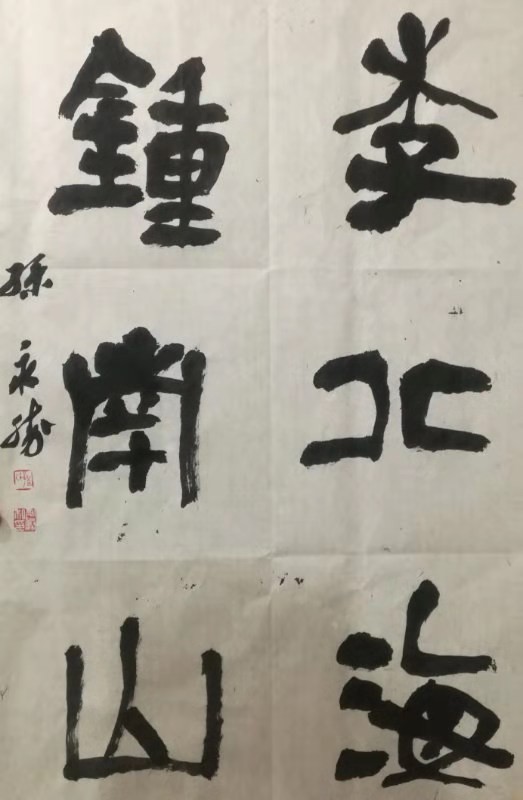 李北海
鍾南山
孫永勝